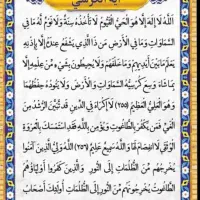 آية الكرسي
اللَّهُ لَا إِلَهَ إِلَّا هُوَ الْحَيُّ الْقَيُّومُ لَا تَأْخُذُهُ سِنَةٌ وَلَا نَوْمٌ لَهُ مَا فِي
السَّمَاوَاتِ وَمَا فِي الْأَرْضِ مَنْ ذَا الَّذِي يَشْفَعُ عِنْدَهُ إِلَّا بِإِذْنِهِ
يَعْلَمُ مَا بَيْنَ أَيْدِيهِمْ وَمَا خَلْفَهُمْ وَلَا يُحِيطُونَ بِشَيْءٍ مِنْ عِلْمِهِ إِلَّا
بِمَا شَاءَ وَسِعَ كُرْسِيُّهُ السَّمَاوَاتِ وَالْأَرْضَ وَلَا يَئُودُهُ حِفْظُهُمَا
وَهُوَ الْعَلِيُّ الْعَظِيمُ (٢٥٥) لَا إِكْرَاهَ فِي الدِّينِ قَدْ تَبَيَّنَ الرُّشْدُ مِنَ
الْغَيِّ فَمَنْ يَكْفُرْ بِالطَّاغُوتِ وَيُؤْمِنْ بِاللَّهِ فَقَدِ اسْتَمْسَكَ بِالْعُرْوَةِ
الْوُثْقَى لَا انْفِصَامَ لَهَا وَاللَّهُ سَمِيعٌ عَلِيمٌ (٢٥٦) اللَّهُ وَلِيُّ الَّذِينَ آمَنُوا
يُخْرِجُهُمْ مِنَ الظُّلُمَاتِ إِلَى النُّورِ وَالَّذِينَ كَفَرُوا أَوْلِيَاؤُهُمُ
الطَّاغُوتُ يُخْرِجُونَهُمْ مِنَ النُّورِ إِلَى الظُّلُمَاتِ أُولَئِكَ أَصْحَابُ